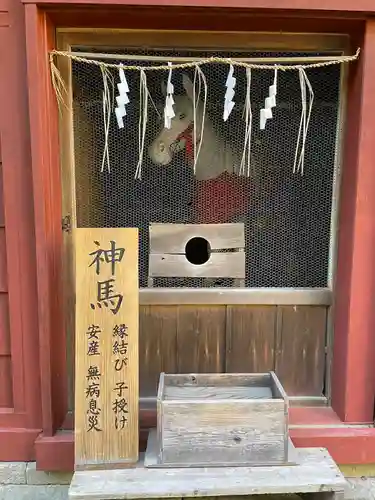 神馬
縁結び 子授
安産 無病息災